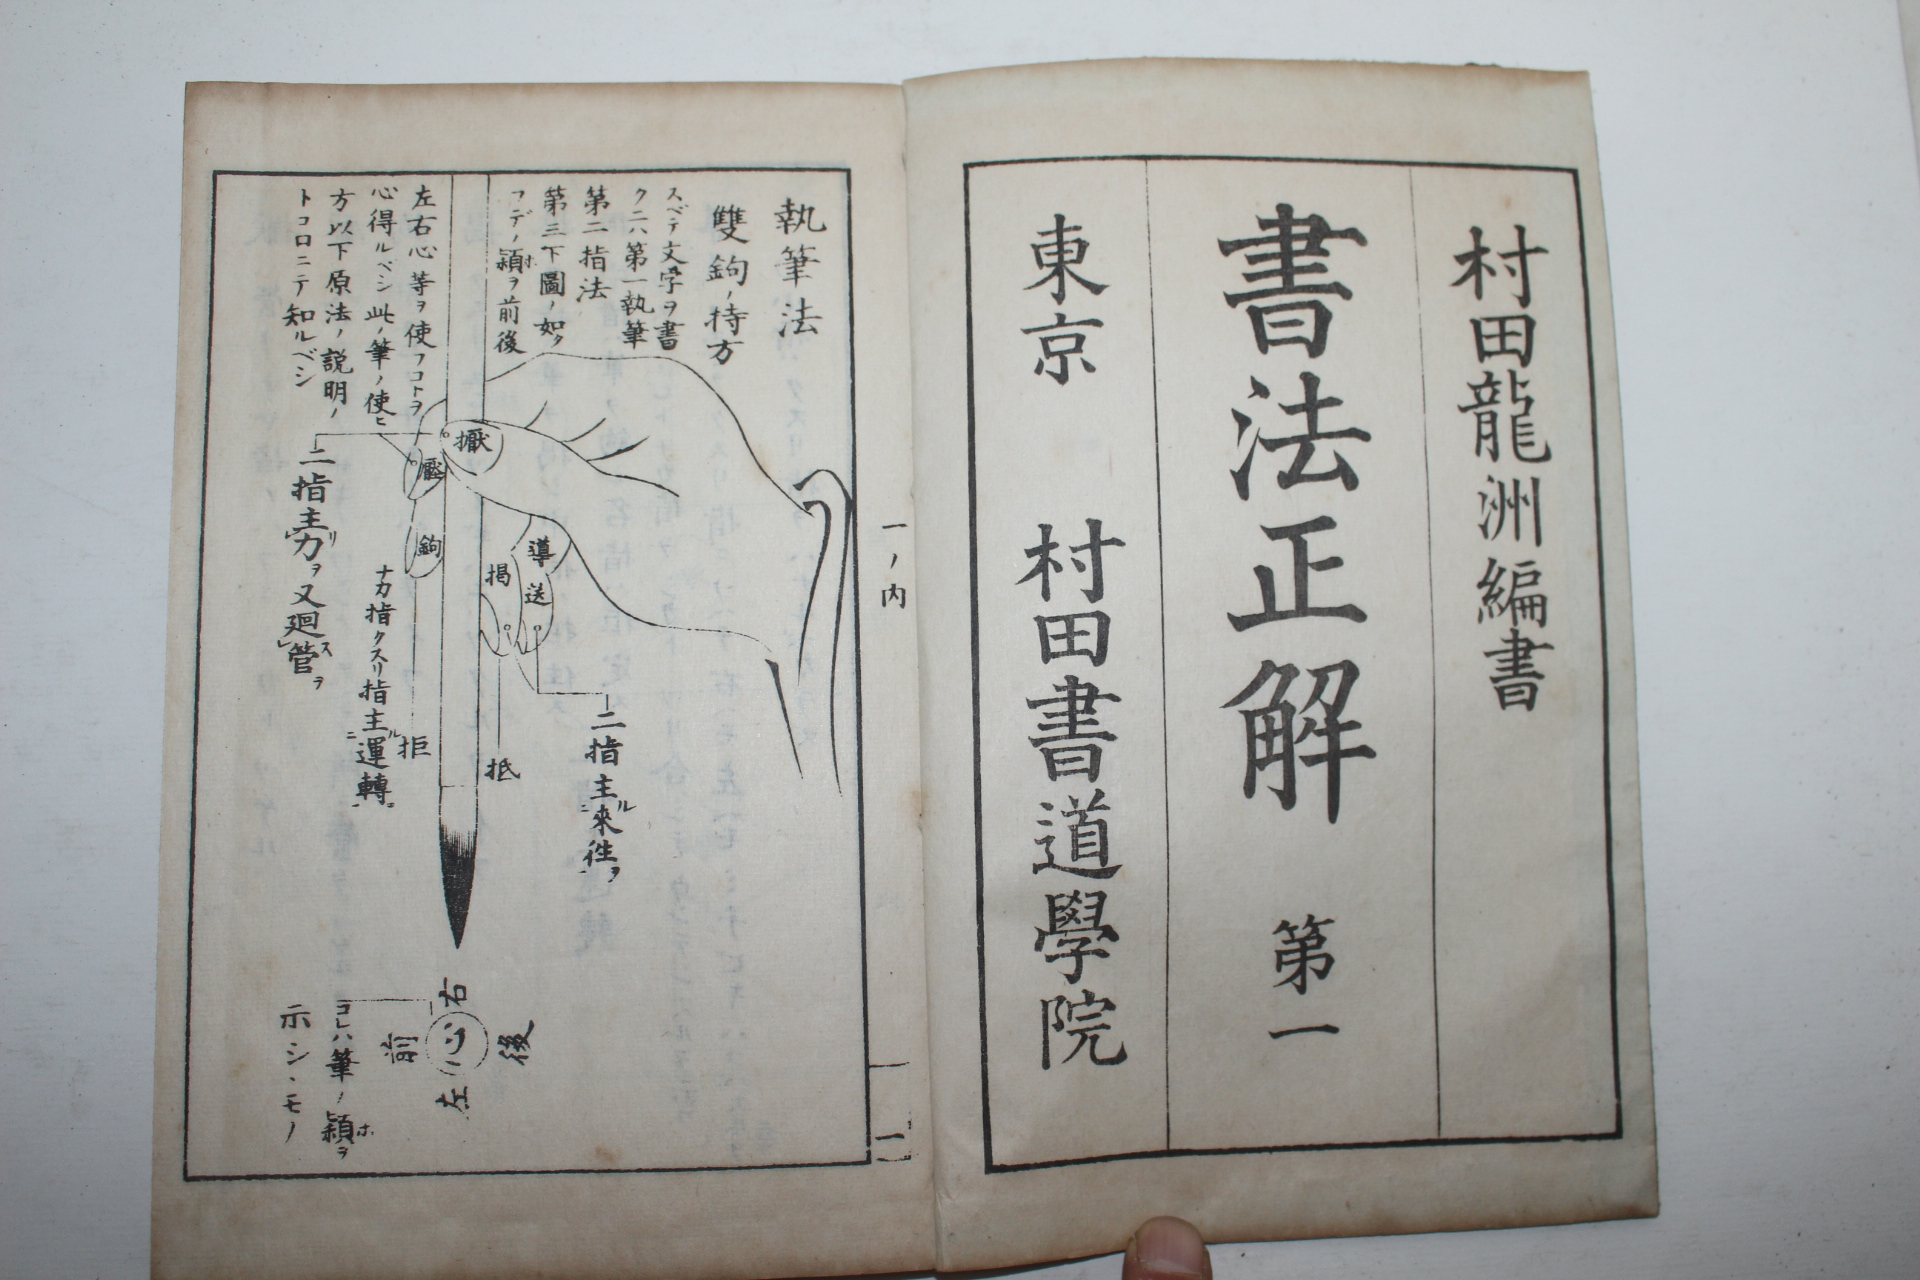 村田龍洲編書
書法正解 第一
東京 村田書道學院
一ノ内
一
執筆法
雙鉤ノ持方
スベテ文字ヲ書
クニハ第一執筆
第二指法
第三下圖ノ如ク
フデノ頴ヲ前後
ホ
左右心等ヲ使フコトヲ
心得ルベシ此ノ筆ノ使ヒ
方以下原法ノ説明ノ
トコロニテ知ルベシ
擫
壓
鉤
導
送
掲
二指主リ力ヲ又廻ス管ヲ
ナカ指クスリ指主ル運轉ニ
拒
抵
二指主ル來往ヲ
右
後
心
前
左
コレハ筆ノ頴ヲ
ホ
示シヽモノ